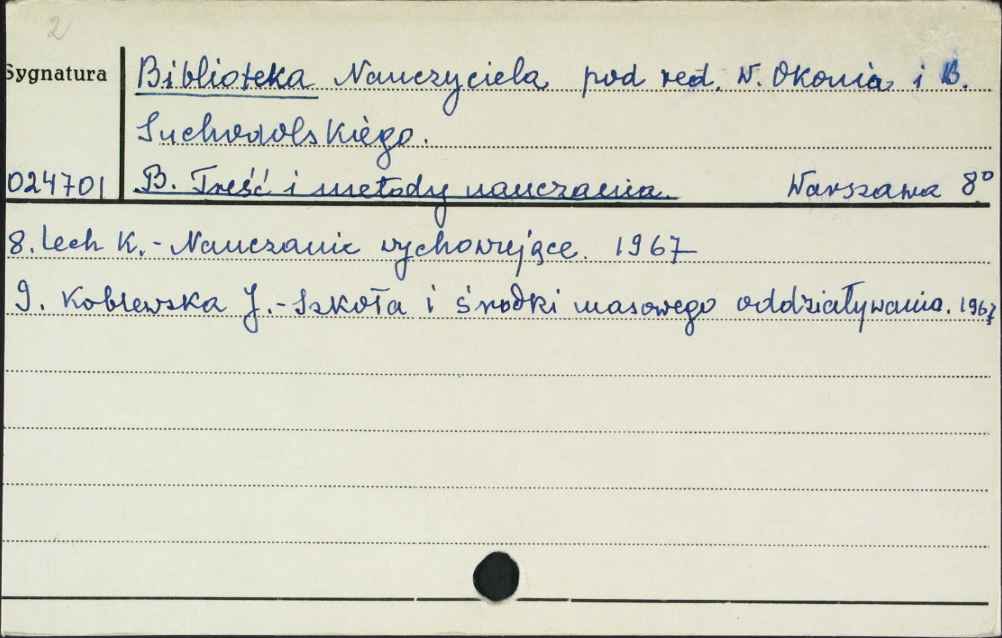 2
Sygnatura
Biblioteka Nauczyciela pod red. W. Okonia i B.
Suchodolskiego.
024701 B. Treść i metody nauczania. Warszawa 8°
8. Lech K. - Nauczanie wychowujące. 1967
9. Koblewska J. - Szkoła i środki masowego oddziaływania. 1967